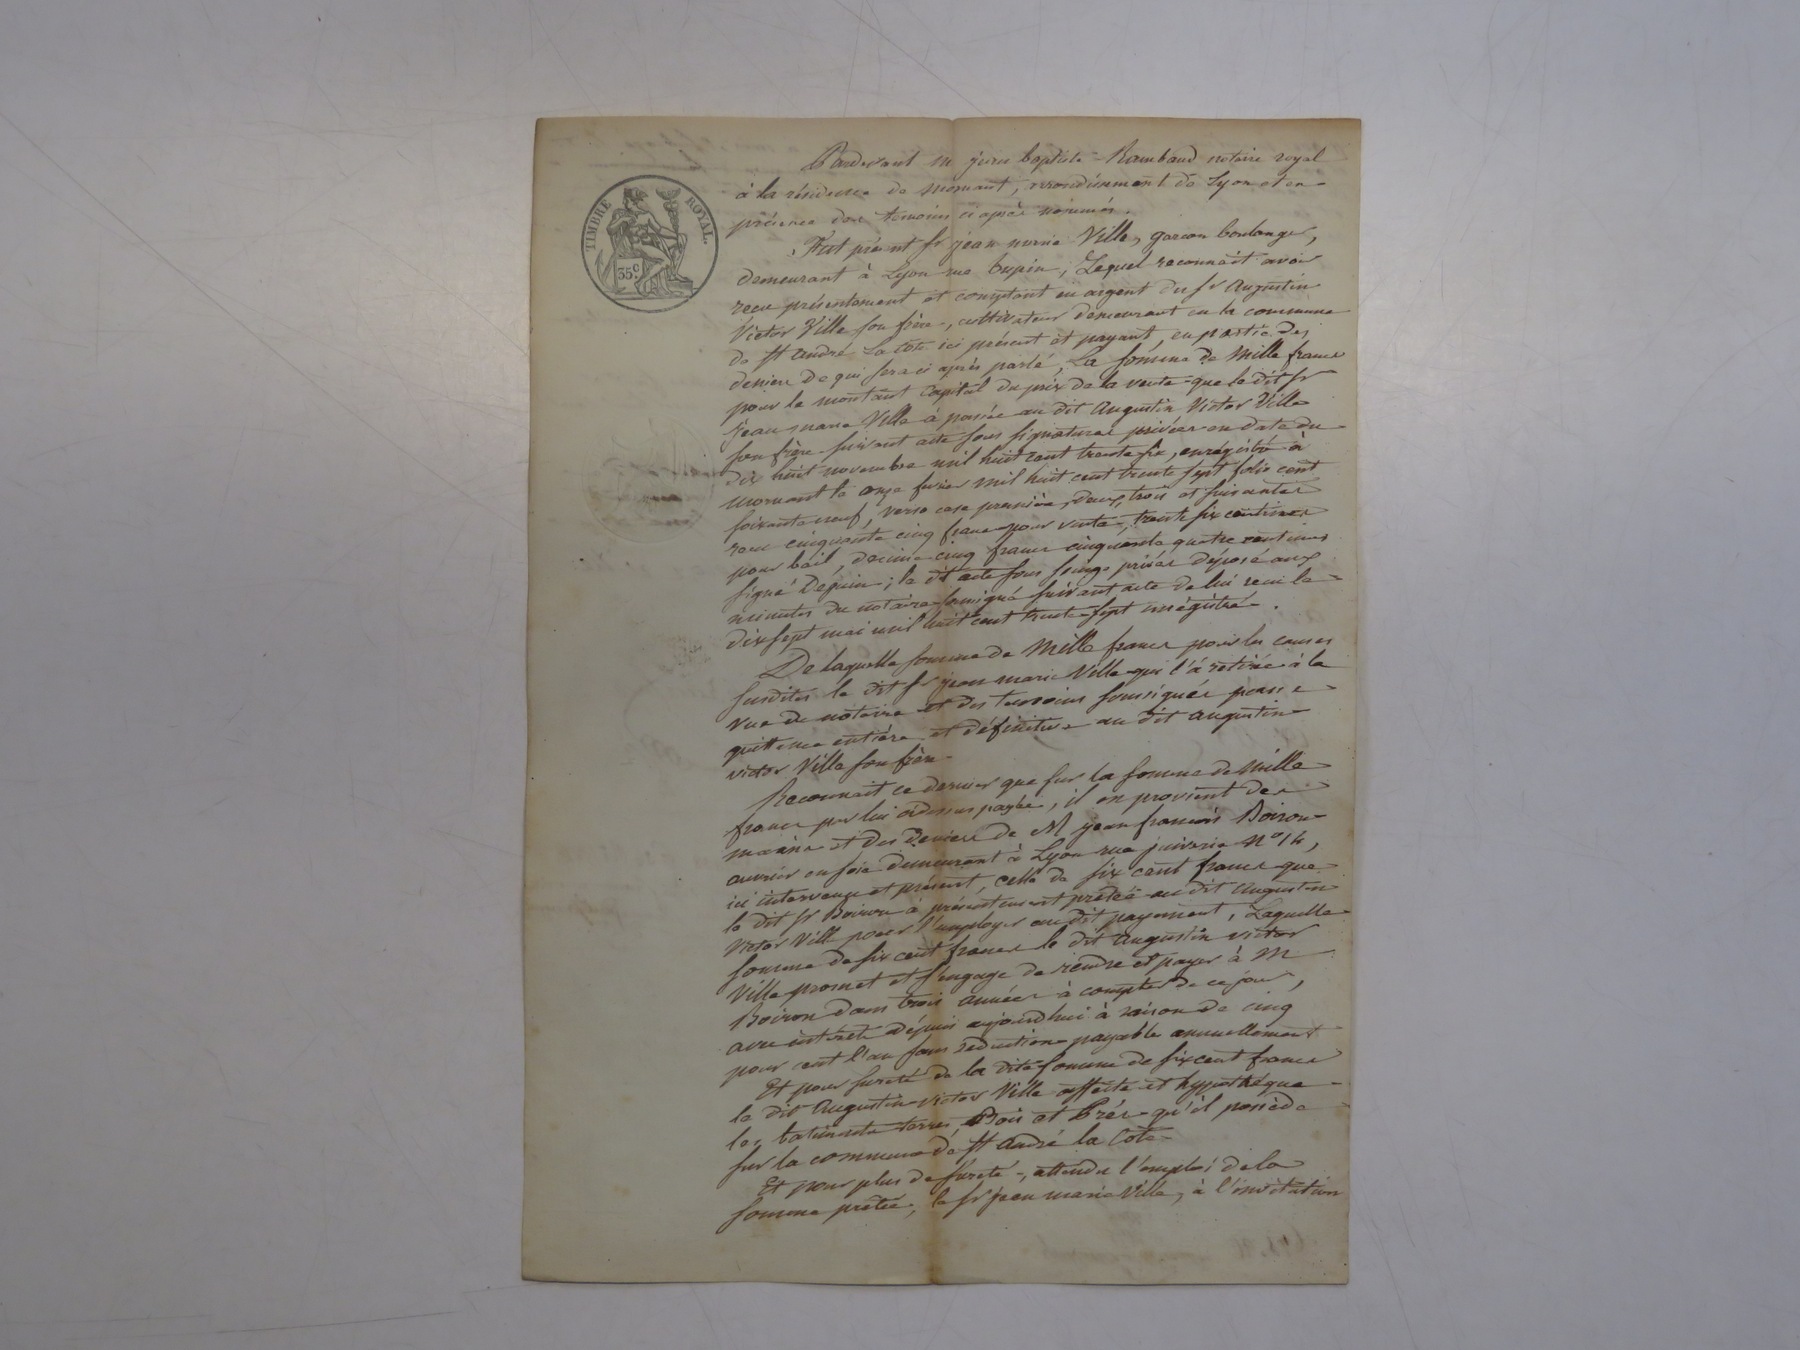 TIMBRE ROYAL.
35 c.
Pardevant Me jean baptiste Rambaud notaire royal
à la résidence de mornant, arrondissement de Lyon et en
présence des temoins ci après nommés.
Fut présent sr jean marie Ville, garcon boulanger,
demeurant à Lyon rue tupin, Lequel reconnait avoir
recu présentement et comptant en argent du sr Augustin
Victor Ville son frère, cultivateur demeurant en la commune
de st andré La Cote ici présent et payant, en partie des
deniers de qui sera ci après parlé, La somme de Mille francs
pour le montant capital du prix de la vente que le dit sr
jean marie Ville à passée au dit Augustin Victor Ville
son frère suivant acte sous signatures privées en date du
dix huit novembre mil huit cent trente six, enrégistré à
mornant le onze fevrier mil huit cent trente sept folio cent
soixante neuf, verso case première, deux, trois et suivantes
recu cinquante cinq francs pour vente, trente six centimes
pour bail, decime cinq francs cinquante quatre centimes
signé Depuin; le dit acte sous seings privés déposé aux
minutes du notaire soussigné suivant acte de lui recu le
dix sept mai mil huit cent trente sept enrégistré.
De laquelle somme de Mille francs pour les causes
susdites le dit sr jean marie Ville qui l'à retirée à la
vue du notaire et des temoins soussignés passe
quittance entière et définitive au dit augustin
victor Ville son frère.
Reconnait ce dernier que sur la somme de Mille
francs par lui cidessus payée, il en provient des
mains et des deniers de M jean francois Boiron
ouvrier en soie demeurant à Lyon rue juiverie n° 14,
ici intervenu et présent, celle de six cent francs que
le dit sr Boiron à présentement pretée au dit Augustin
Victor Ville pour l'employer au dit payement, Laquelle
somme de six cent francs le dit Augustin victor
Ville promet et s'engage de rendre et payer à M
Boiron dans trois années à compter de ce jour,
avec intérêts depuis aujourdhui à raison de cinq
pour cent l'an sans réduction payable annuellement
Et pour sureté de la dite somme de six cent francs
le dit Augustin victor Ville affecte et hyppothéque
les batiments terres, Bois et Prés qu'il possède
sur la commune de st andré la Cote
Et pour plus de sureté, attendu l'emploi de la
somme prêtée, le sr jean marie Ville, à l'invitation